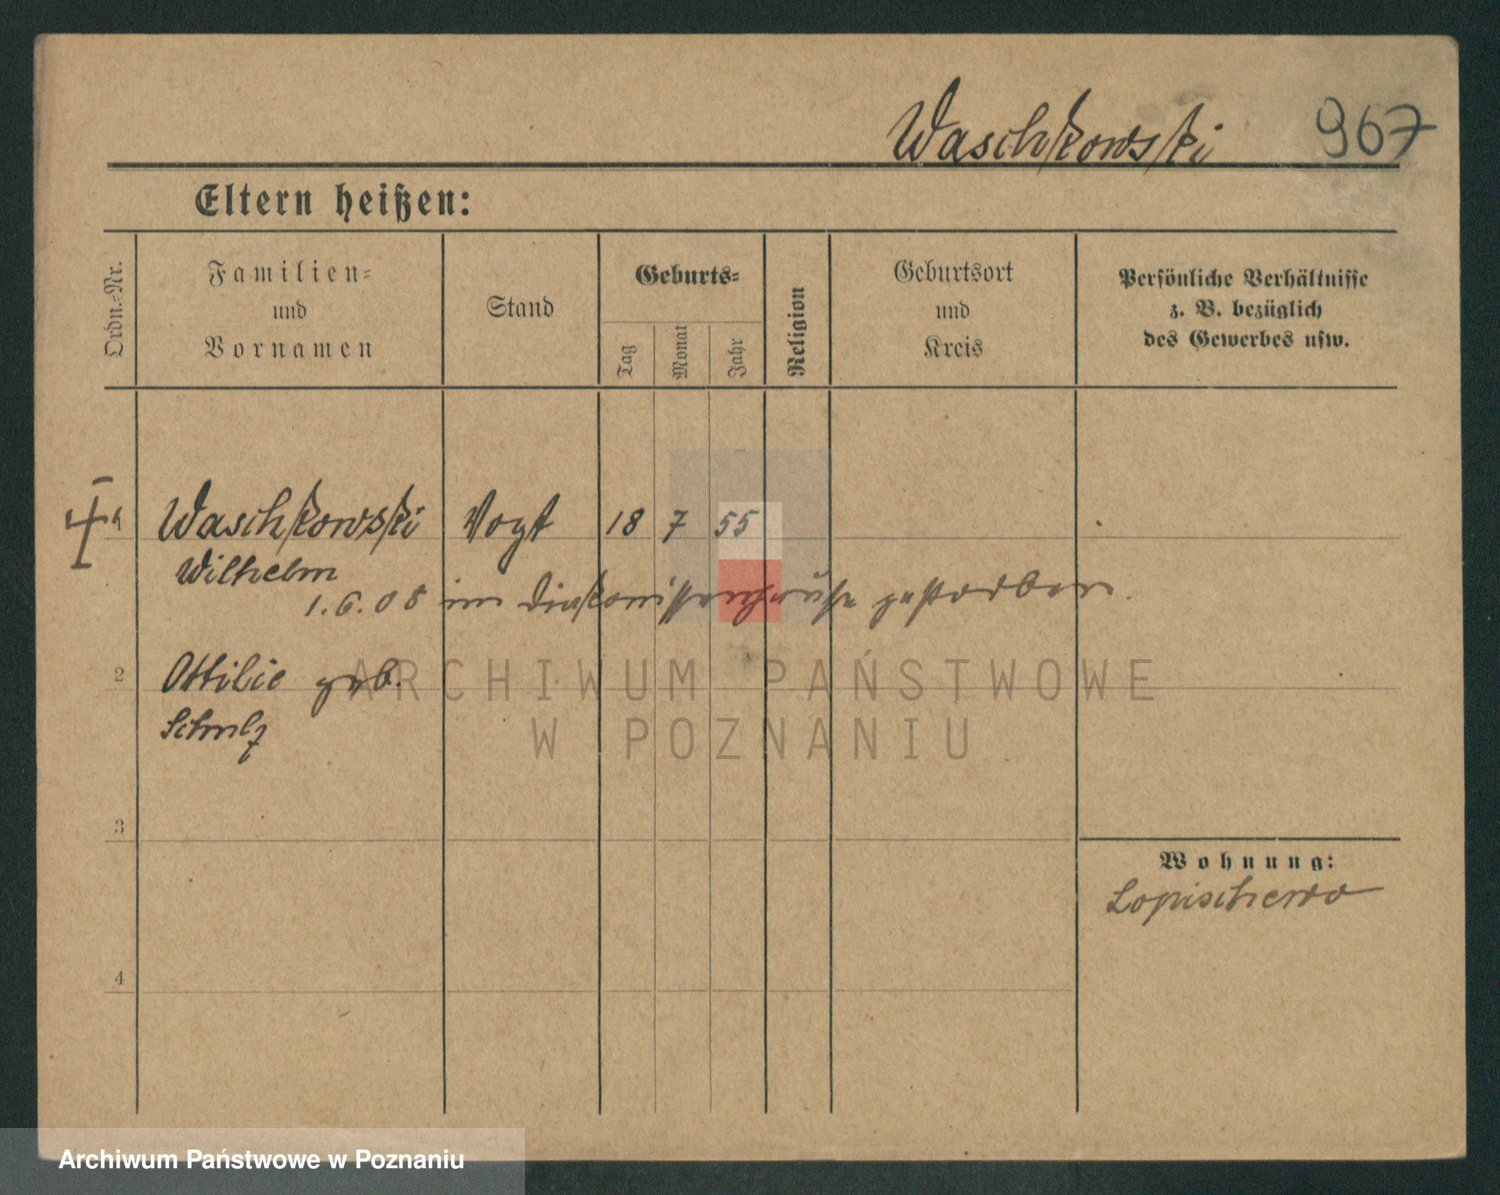 Waschkowski 967
Eltern heißen:
Ordn.-Nr.
Familien-
und
Vornamen
Stand
Geburts-
Tag
Monat
Jahr
Religion
Geburtsort
und
Kreis
Persönliche Verhältnisse
z. B. bezüglich
des Gewerbes usw.
1 Waschkowski Vogt 18 7 55
Wilhelm
1.6.08 im Diakonissenhause gestorben.
2 Ottilie geb.
Schulz
3
4
Wohnung:
Lopischewo
ARCHIWUM PAŃSTWOWE
W POZNANIU
Archiwum Państwowe w Poznaniu